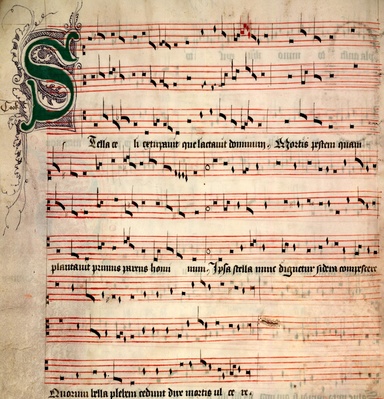 Stella ce li extirpauit que lactauit dominum. Mortis pestem quam
plantauit primus parens homi num. Ipsa stella nunc dignetur sidera compescere
Quorum bella plebem cedunt dire mortis ul ce re.